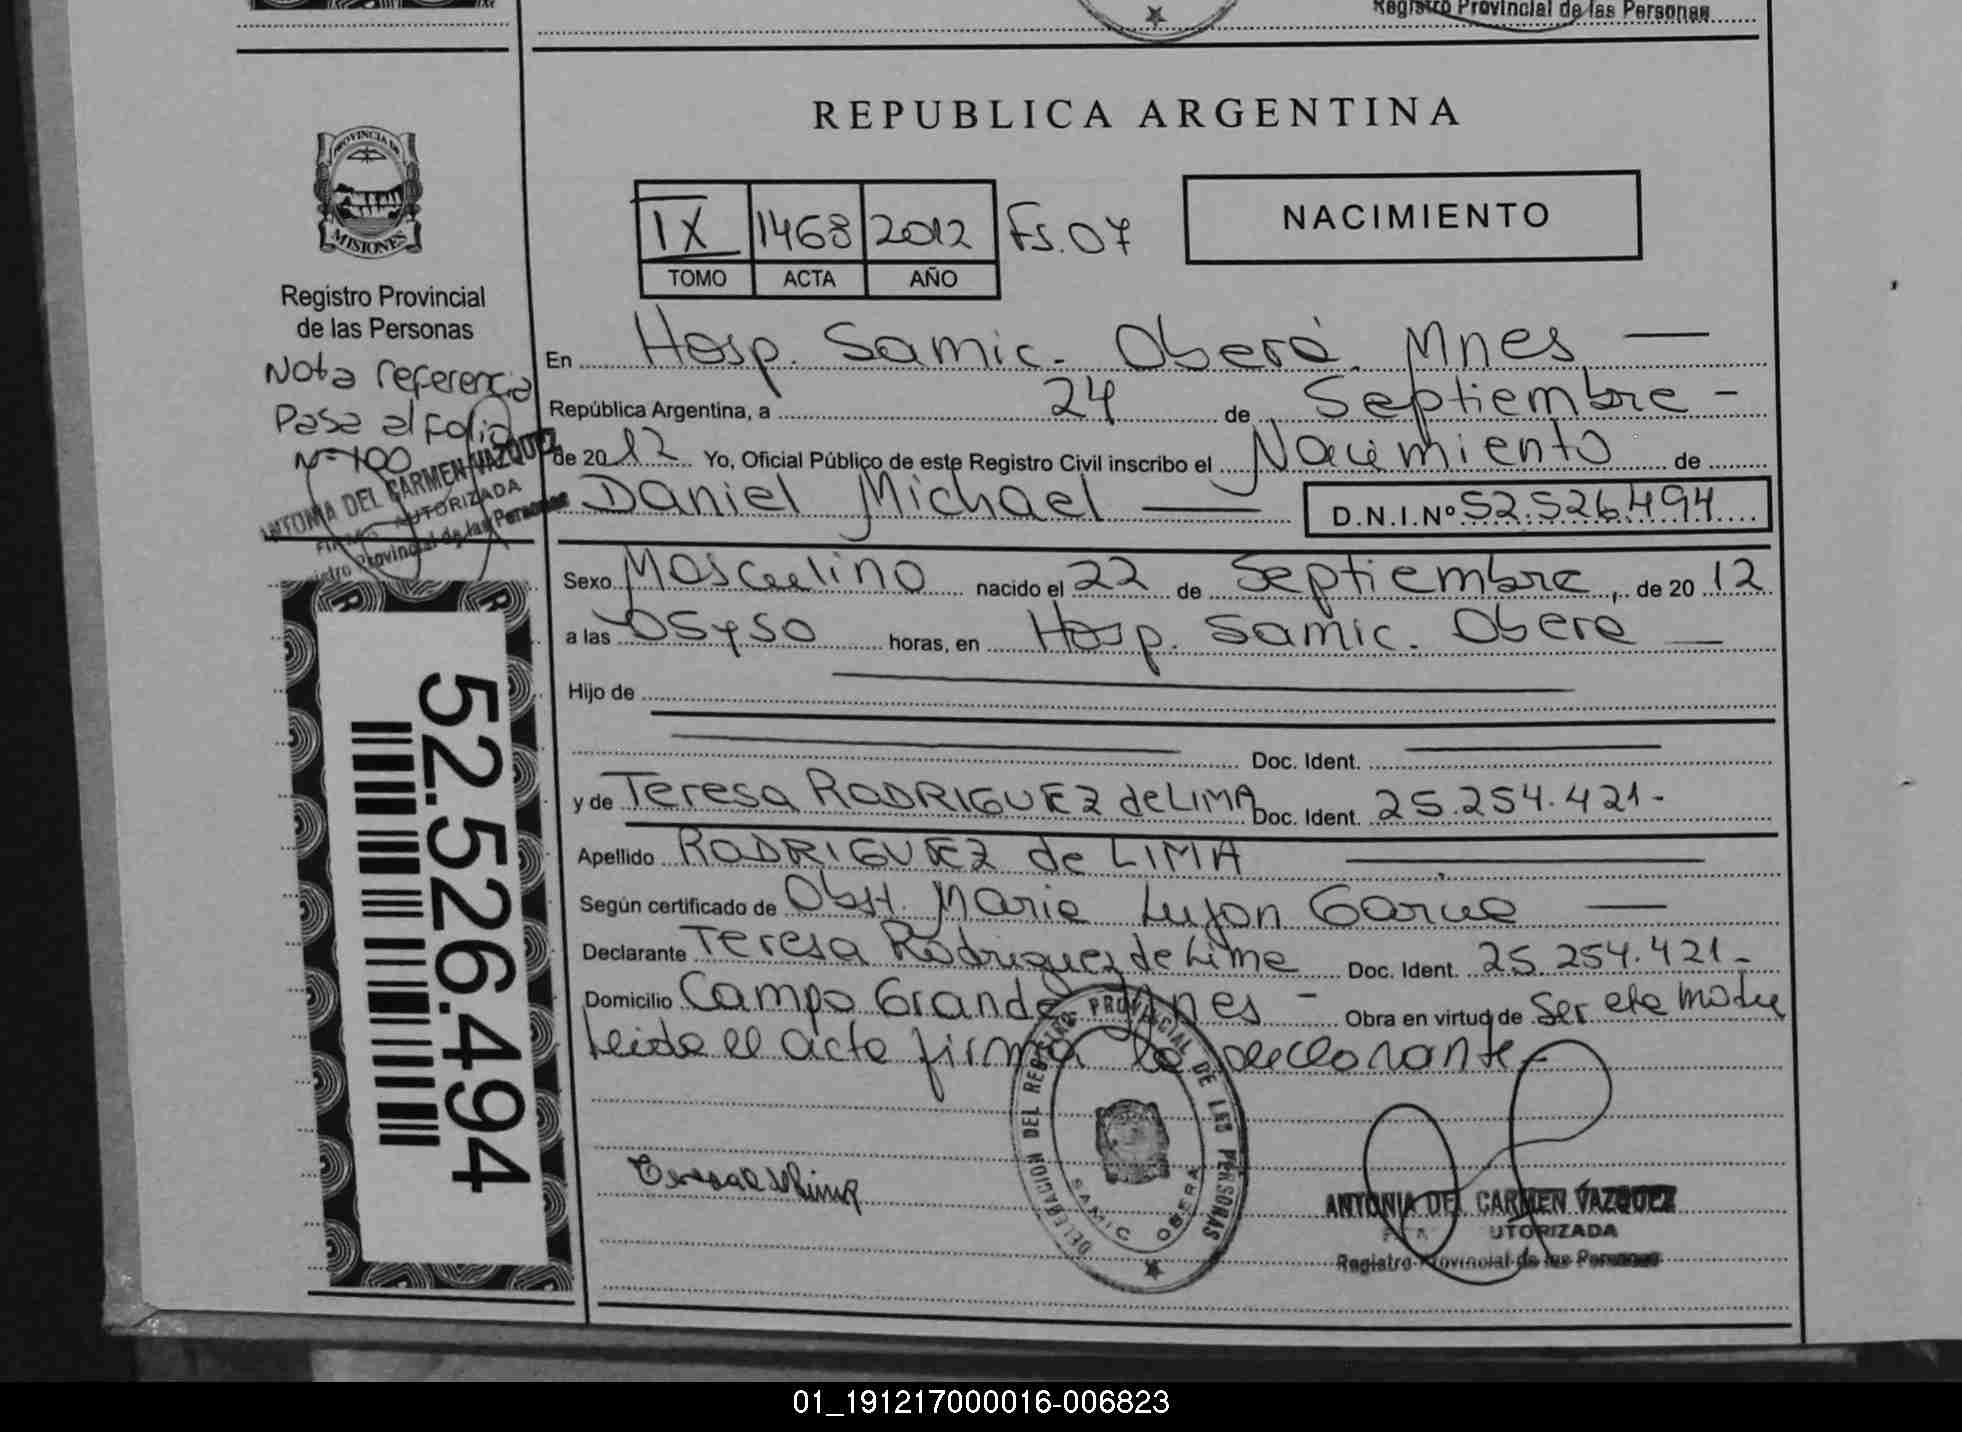 Registro Provincial de las Personas
REPUBLICA ARGENTINA
PROVINCIA DE
MISIONES
Registro Provincial
de las Personas
Nota referencia
Pasa al folio
Nº 100
ANTONIA DEL CARMEN VAZQUEZ
AUTORIZADA
Registro Provincial de las Personas
IX 1468 2012 Fs. 07
TOMO ACTA AÑO
NACIMIENTO
En Hosp. Samic. Oberá. Mnes
República Argentina, a 24 de Septiembre -
de 2012 Yo, Oficial Público de este Registro Civil inscribo el Nacimiento de
Daniel Michael D.N.I.Nº 52.526.494
Sexo Masculino nacido el 22 de Septiembre, de 20 12
a las 05y50 horas, en Hosp. Samic. Obera
Hijo de
Doc. Ident.
y de Teresa RODRIGUEZ de LIMA Doc. Ident. 25.254.421-
Apellido RODRIGUEZ de LIMA
Según certificado de Obst. Maria Lujan Garcia
Declarante Teresa Rodriguez de Lima Doc. Ident. 25.254.421-
Domicilio Campo Grande Mnes - Obra en virtud de Ser ela madre
Leida el acta firma la declarante-
52.526.494
DELEGACION DEL REGISTRO PROVINCIAL DE LAS PERSONAS
SAMIC OBERA
ANTONIA DEL CARMEN VAZQUEZ
AUTORIZADA
Registro Provincial de las Personas
01_191217000016-006823